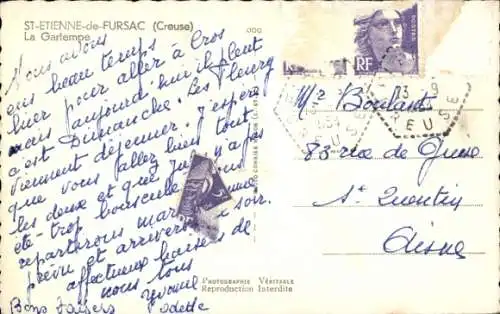 ST-ETIENNE-de-FURSAC (Creuse)
La Gartempe
Nous avons
eus beau temps
hier pour aller à Cros
mais aujourd'hui il pleut
c'est Dimanche. Les Fleury
viennent déjeuner. J'espère
que vous allez bien tout
les deux et que n'a pas
été trop bousculé. Nous
repartirons mardi comme
prévu et arriverons le soir.
affectueux baisers de
nous tous
Yvonne
Bons baisers Odette
POSTES
RF
CREUSE
Mr Boulant
83 rue de Guise
St Quentin
Aisne
PHOTOGRAPHIE VÉRITABLE
Reproduction Interdite